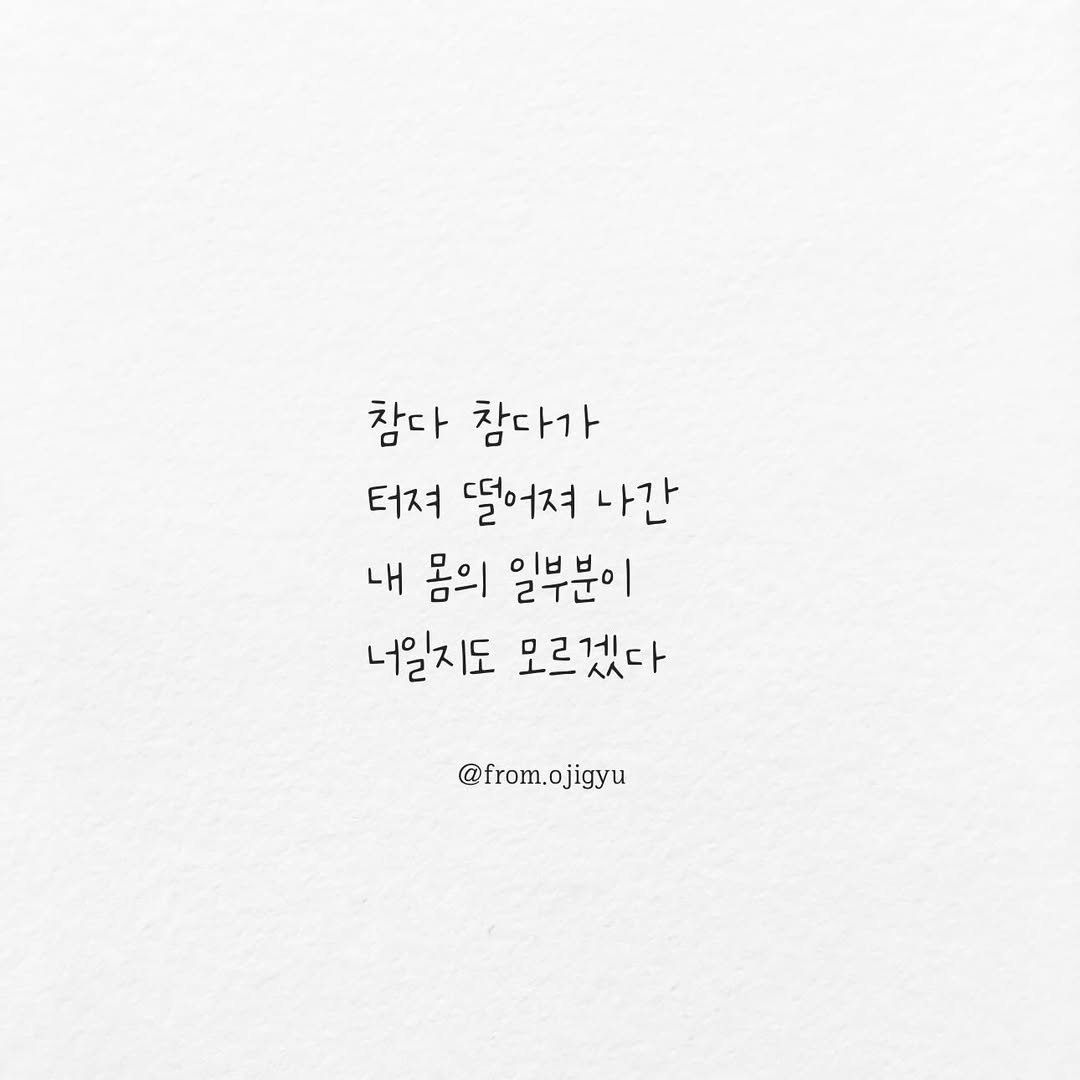 참다 참다가
터져 떨어져 나간
내 몸의 일부분이
너일지도 모르겠다
@from.ojigyu